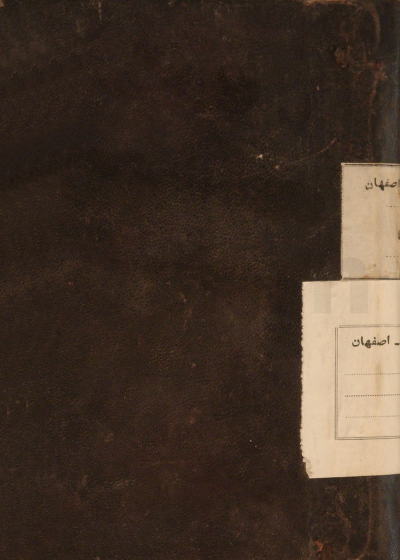 اصفهان
ـ اصفهان